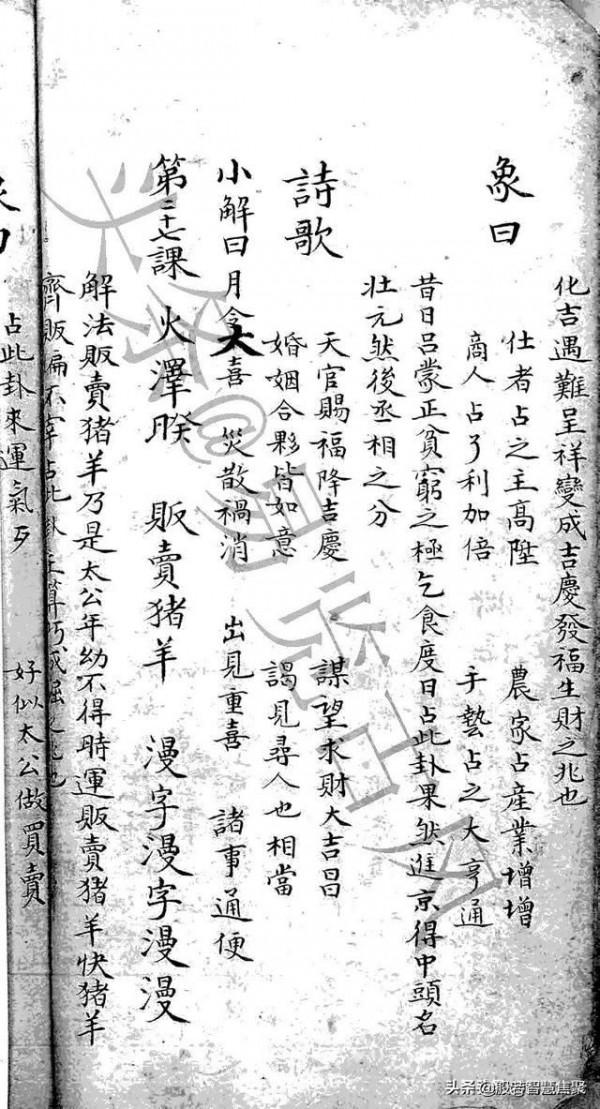 化吉遇難呈祥變成吉慶發福生財之兆也
象曰
仕者占之主高陞 農家占產業增增
商人占了利加倍 手藝占之大亨通
昔日呂蒙正貧窮之極乞食度日占此卦果然進京得中頭名
壯元然後丞相之分
詩歌
天官賜福降吉慶 謀望求財大吉昌
婚姻合夥皆如意 謁見尋人也相當
小解曰月令大喜 災散禍消 出見重喜 諸事通便
第二十七課 火澤睽 販賣猪羊 漫字漫字漫漫
解法販賣猪羊乃是太公年幼不得時運販賣猪羊快猪羊
齊販 不宰占此卦
占此卦來運氣歹 好似太公做買賣
头条@
头条@般若智慧焦聚